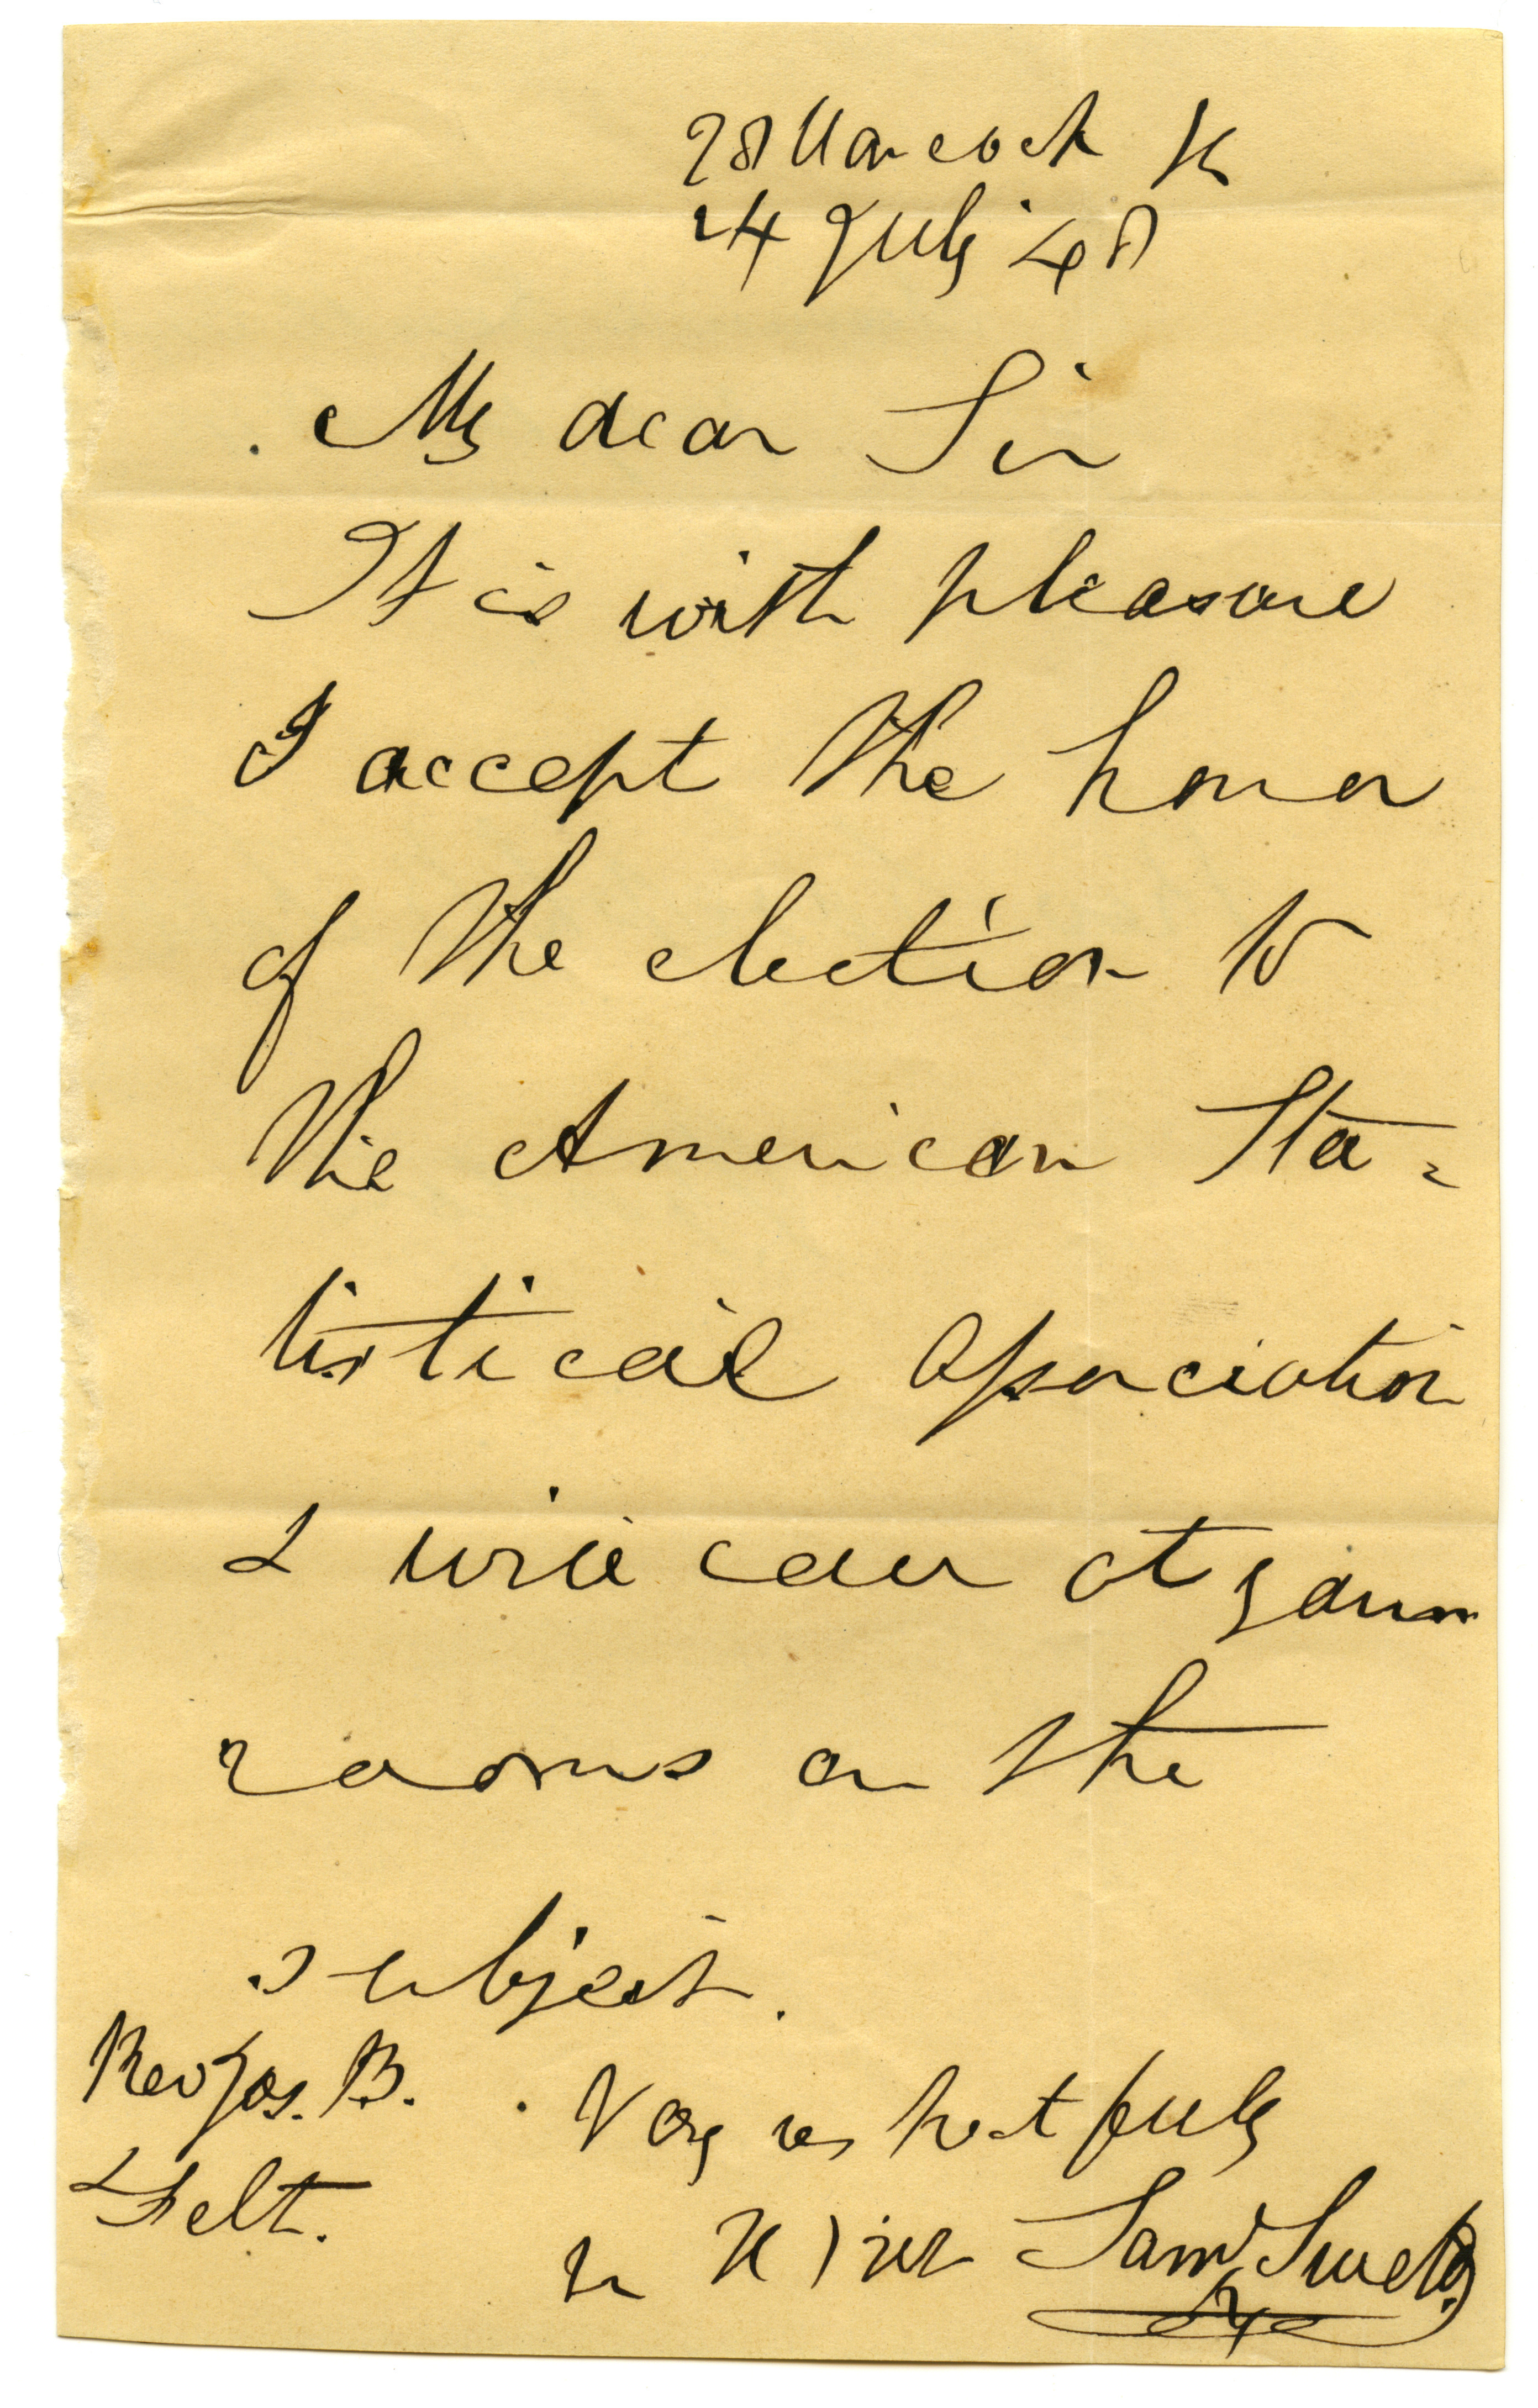 28 Hancock St
24 July '48
My dear Sir
It is with pleasure
I accept the honor
of the election to
the American Sta-
tistical Association
I will call at your
rooms on the
subject.
Rev Jos. B.
Felt.
Very respectfully
Saml Swett